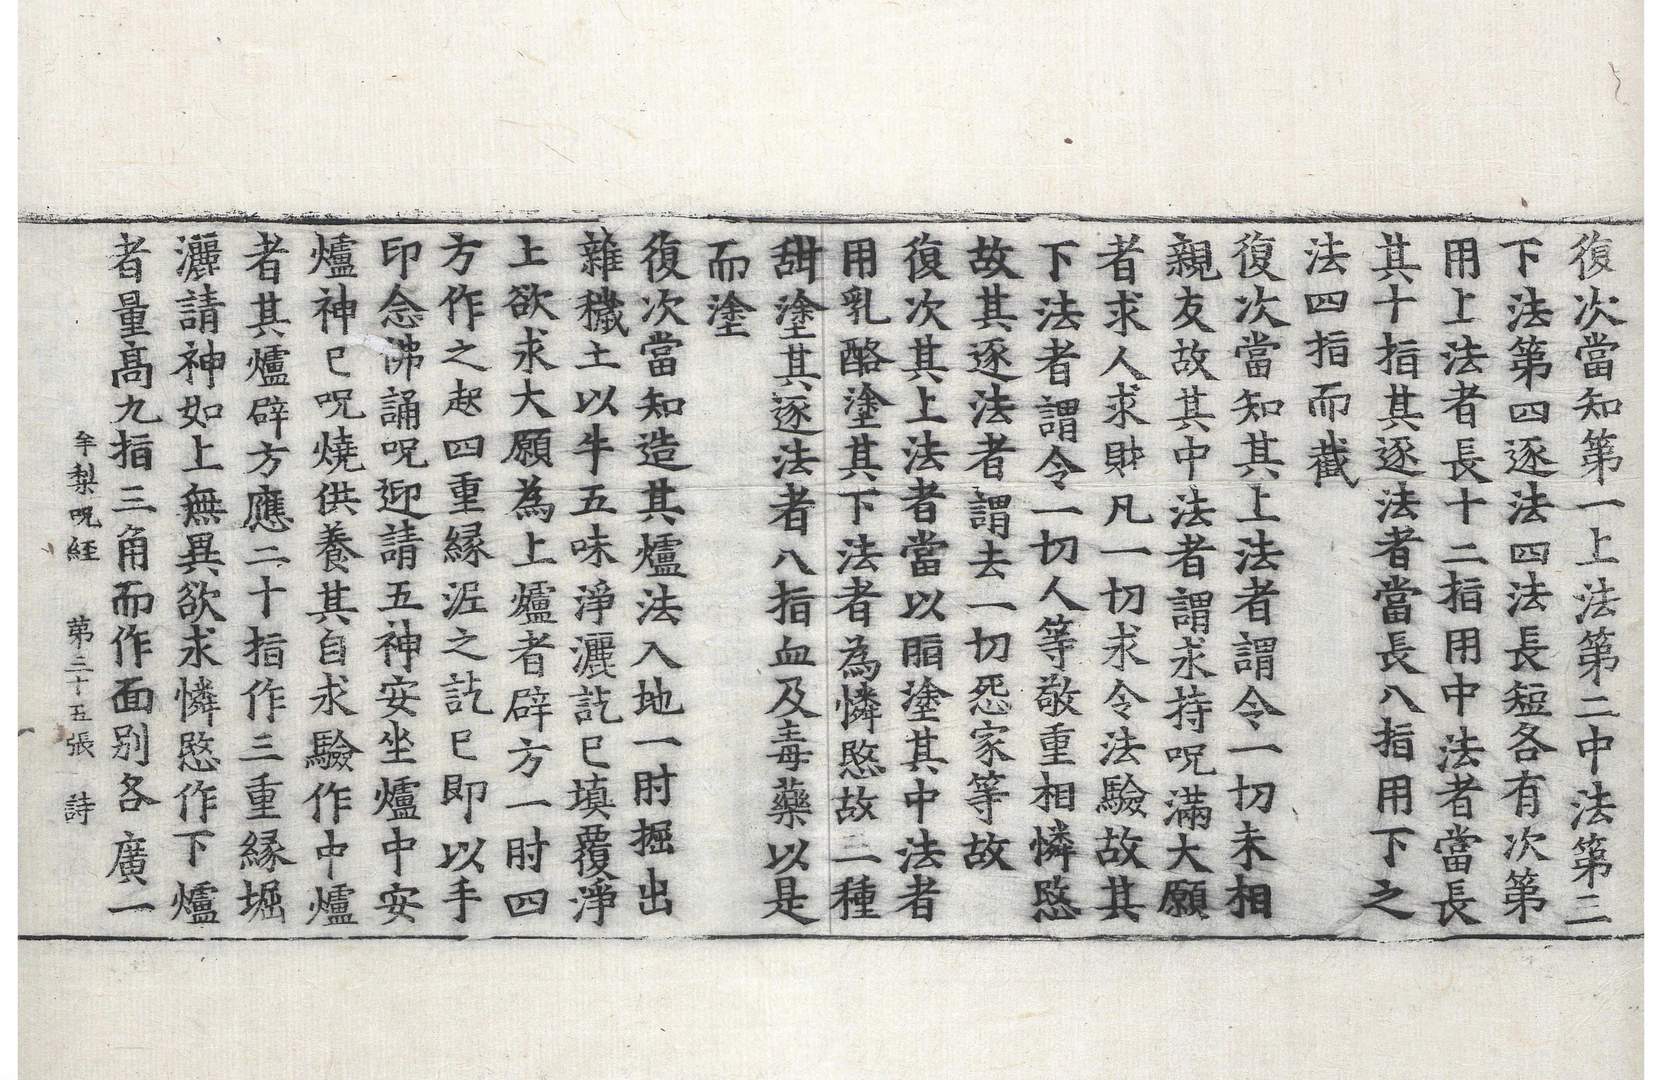 復次當知第一上法第二中法第三
下法第四逐法四法長短各有次第
用上法者長十二指用中法者當長
其十指其逐法者當長八指用下之
法四指而截
復次當知其上法者謂令一切未相
親友故其中法者謂求持呪滿大願
者求人求財凡一切求令法驗故其
下法者謂令一切人等敬重相憐愍
故其逐法者謂去一切怨家等故
復次其上法者當以脂塗其中法者
用乳酪塗其下法者為憐愍故二種
甜塗其逐法者八指血及毒藥以是
而塗
復次當知造其爐法入地一肘掘出
雜穢土以牛五味淨灑訖已填覆淨
上欲求大願為上爐者辟方一肘四
方作之起四重緣泥之訖已即以手
印念佛誦呪迎請五神安坐爐中安
爐神已呪燒供養其自求驗作中爐
者其爐辟方應二十指作三重緣堀
灑請神如上無異欲求憐愍作下爐
者量高九指三角而作面別各廣一
牟梨呪経 第三十五張 詩